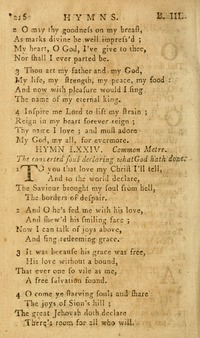 216 HYMNS. B. III.
2 O may thy goodness on my breast,
As marks divine be well impress'd ;
My heart, O God, I've give to thee,
Nor shall I ever parted be.
3 Thou art my father and my God,
My life, my strength, my peace, my food :
And now with pleasure would I sing
The name of my eternal king.
4 Inspire me Lord to lift my strain ;
Reign in my heart forever reign ;
Thy name I love ; and must adore
My God, my all, for evermore.
HYMN LXXIV. Common Metre.
The converted soul declaring what God hath done.
1 TO you that love my Christ I'll tell,
And to the world declare,
The Saviour brought my soul from hell,
The borders of despair.
2 And O he's fed me with his love,
And shew'd his smiling face ;
Now I can talk of joys above,
And sing redeeming grace.
3 It was because his grace was free,
His love without a bound,
That ever one so vile as me,
A free salvation found.
4 O come ye starving souls and share
The joys of Sion's hill ;
The great Jehovah doth declare
There's room for all who will.